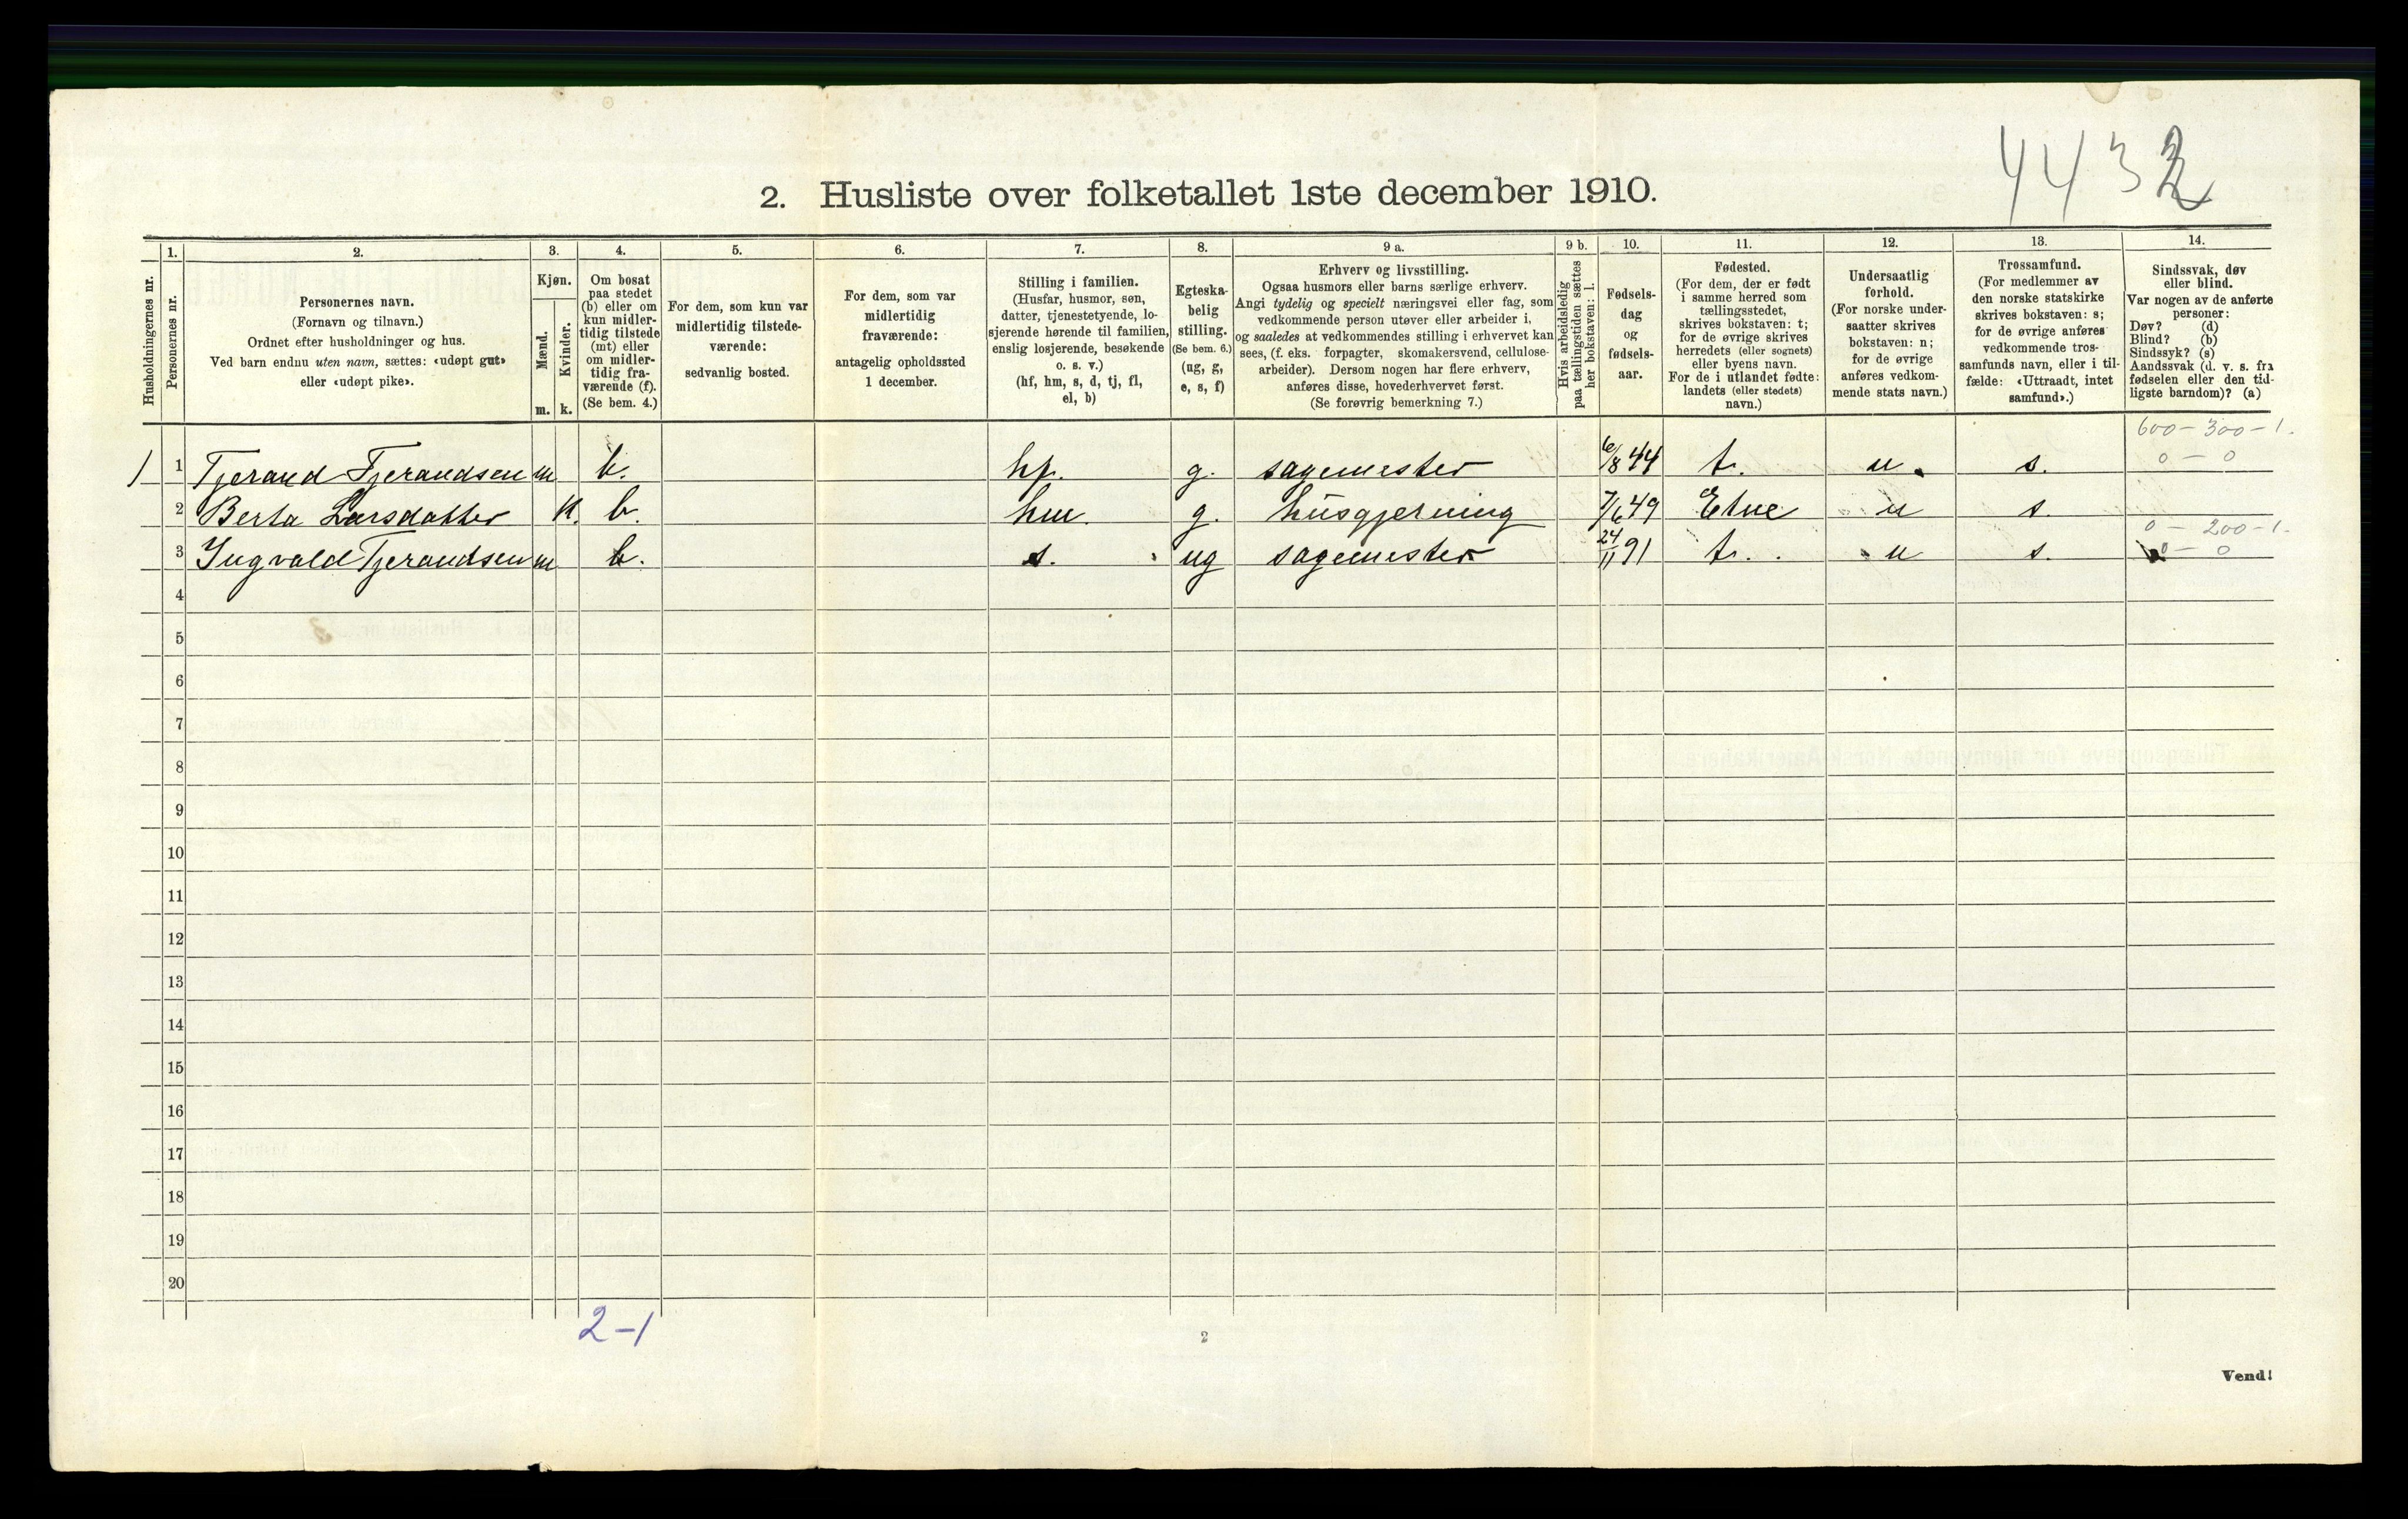 4432
2. Husliste over folketallet 1ste december 1910.
Husholdningernes nr.
1.
Personernes nr.
2.
Personernes navn.
(Fornavn og tilnavn.)
Ordnet efter husholdninger og hus.
Ved barn endnu uten navn, sættes: «udøpt gut»
eller «udøpt pike».
3.
Kjøn.
Mænd.
Kvinder.
m. k.
4.
Om bosat
paa stedet
(b) eller om
kun midler-
tidig tilstede
(mt) eller
om midler-
tidig fra-
værende (f).
(Se bem. 4.)
5.
For dem, som kun var
midlertidig tilstede-
værende:
sedvanlig bosted.
6.
For dem, som var
midlertidig
fraværende:
antagelig opholdssted
1 december.
7.
Stilling i familien.
(Husfar, husmor, søn,
datter, tjenestetyende, lo-
sjerende hørende til familien,
enslig losjerende, besøkende
o. s. v.)
(hf, hm, s, d, tj, fl,
el, b)
8.
Egteska-
belig
stilling.
(Se bem. 6.)
(ug, g,
e, s, f)
9 a.
Erhverv og livsstilling.
Ogsaa husmors eller barns særlige erhverv.
Angi tydelig og specielt næringsvei eller fag, som
vedkommende person utøver eller arbeider i,
og saaledes at vedkommendes stilling i erhvervet kan
sees, (f. eks. forpagter, skomakersvend, cellulose-
arbeider). Dersom nogen har flere erhverv,
anføres disse, hovederhvervet først.
(Se forøvrig bemerkning 7.)
9 b.
Hvis arbeidsledig
paa tællingstiden sættes
her bokstaven: l.
10.
Fødsels-
dag
og
fødsels-
aar.
11.
Fødested.
(For dem, der er født
i samme herred som
tællingsstedet,
skrives bokstaven: t;
for de øvrige skrives
herredets (eller sognets)
eller byens navn.
For de i utlandet fødte:
landets (eller stedets)
navn.)
12.
Undersaatlig
forhold.
(For norske under-
saatter skrives
bokstaven: n;
for de øvrige
anføres vedkom-
mende stats navn.)
13.
Trossamfund.
(For medlemmer av
den norske statskirke
skrives bokstaven: s;
for de øvrige anføres
vedkommende tros-
samfunds navn, eller i til-
fælde: «Uttraadt, intet
samfund».)
14.
Sindssvak, døv
eller blind.
Var nogen av de anførte
personer:
Døv? (d)
Blind? (b)
Sindssyk? (s)
Aandssvak (d. v. s. fra
fødselen eller den tid-
ligste barndom)? (a)
600 - 300 - 1.
1 1 Tjerand Tjerandsen m b. hf. g. sagemester 6/8 44 t. n. s. 0 - 0
2 Berta Larsdatter k. b. hm. g. husgjerning 7/6 49 Etne n s.
0 - 200 - 1.
3 Ingvald Tjerandsen m b. s. ug sagemester 24/11 91 t. n s. 0 - 0
4
5
6
7
8
9
10
11
12
13
14
15
16
17
18
19
20
2-1
2
Vend!